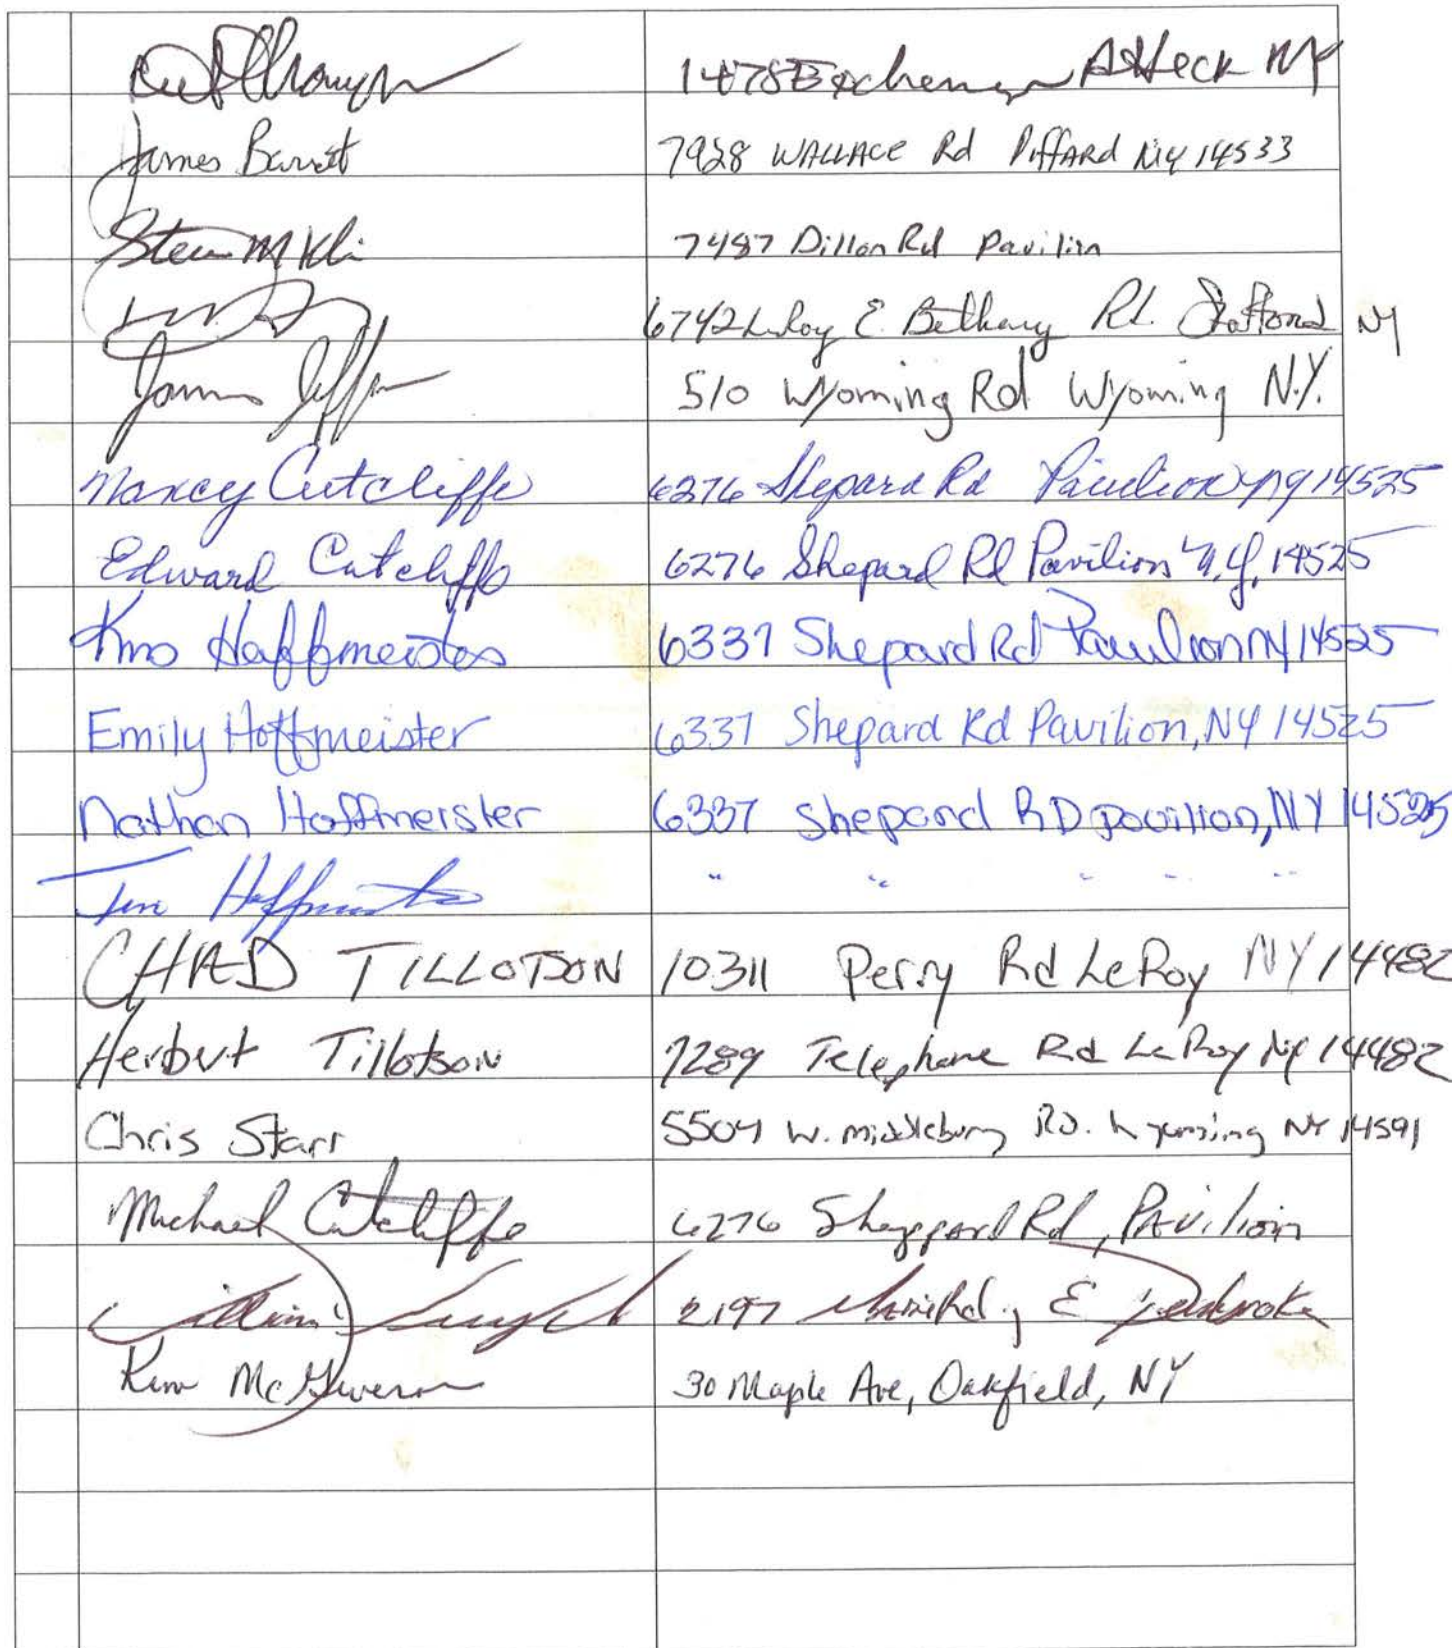 1478 NY
James Barrett 7928 WALLACE Rd Piffard NY 14533
7487 Dillon Rd Pavilion
6742 LeRoy E. Bethany Rd. Stafford NY
James 510 Wyoming Rd Wyoming N.Y.
Nancy Cutcliffe 6276 Shepard Rd Pavilion NY 14525
Edward Cutcliffe 6276 Shepard Rd Pavilion N.Y. 14525
Hoffmeister 6337 Shepard Rd Pavilion NY 14525
Emily Hoffmeister 6337 Shepard Rd Pavilion, NY 14525
Nathan Hoffmeister 6337 Shepard RD pavilion, NY 14525
Hoffmeister " " " " "
CHAD TILLOTSON 10311 Perry Rd LeRoy NY 14482
Herbert Tillotson 7289 Telephone Rd LeRoy NY 14482
Chris Starr 5504 W. Middlebury RD. Wyoming NY 14591
Michael Cutcliffe 6276 Sheppard Rd, Pavilion
William 2197 Rd., E Pembroke
Kim McGiveron 30 Maple Ave, Oakfield, NY